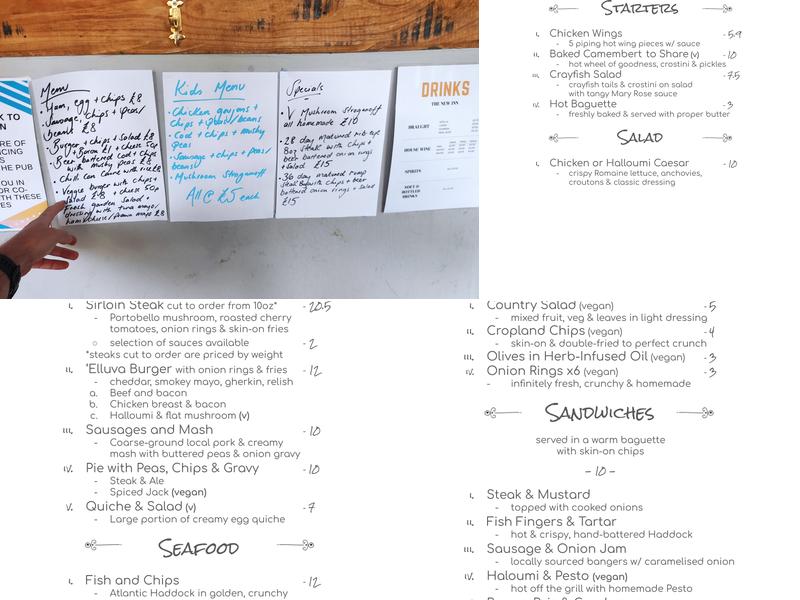 K TO
N
RE OF
NCING
S
THE PUB
YOU IN
OR CO-
WITH THESE
VES
Menu
• Ham, egg + chips £8
• Sausage, chips + peas/
beans £8
• Burger + chips + salad £8
+ Bacon £1 + cheese 50p
• Beer battered cod + chips
with mushy peas £8
• Chilli con carne with rice £8
• Veggie burger with chips +
salad £8 + cheese 50p
• Fresh garden salad +
dressing with tuna mayo/
ham/cheese/prawn mayo £8
Kids Menu
• Chicken goujons +
chips + peas/beans
• Cod + chips + mushy
peas
• Sausage + chips + peas/
beans
• Mushroom Stroganoff
All @ £5 each
Specials
• V Mushroom Stroganoff
all homemade £10
• 28 day matured rib eye
8oz steak with chips +
beer battered onion rings
+ salad
£15
• 36 day matured rump
steak with chips + beer
battered onion rings + salad
£15
DRINKS
THE NEW INN
DRAUGHT
HOUSE WINE
SPIRITS
SOFT &
BOTTLED
DRINKS
STARTERS
I. Chicken Wings - 5.9
- 5 piping hot wing pieces w/ sauce
II. Baked Camembert to Share (v) - 10
- hot wheel of goodness, crostini & pickles
III. Crayfish Salad - 7.5
- crayfish tails & crostini on salad
with tangy Mary Rose sauce
IV. Hot Baguette - 3
- freshly baked & served with proper butter
SALAD
I. Chicken or Halloumi Caesar - 10
- crispy Romaine lettuce, anchovies,
croutons & classic dressing
I. Sirloin Steak cut to order from 10oz* - 20.5
- Portobello mushroom, roasted cherry
tomatoes, onion rings & skin-on fries
○ selection of sauces available - 2
*steaks cut to order are priced by weight
II. 'Elluva Burger with onion rings & fries - 12
- cheddar, smokey mayo, gherkin, relish
a. Beef and bacon
b. Chicken breast & bacon
c. Halloumi & flat mushroom (v)
III. Sausages and Mash - 10
- Coarse-ground local pork & creamy
mash with buttered peas & onion gravy
IV. Pie with Peas, Chips & Gravy - 10
- Steak & Ale
- Spiced Jack (vegan)
V. Quiche & Salad (v) - 7
- Large portion of creamy egg quiche
SEAFOOD
I. Fish and Chips - 12
- Atlantic Haddock in golden, crunchy
I. Country Salad (vegan) - 5
- mixed fruit, veg & leaves in light dressing
II. Cropland Chips (vegan) - 4
- skin-on & double-fried to perfect crunch
III. Olives in Herb-Infused Oil (vegan) - 3
IV. Onion Rings x6 (vegan) - 3
- infinitely fresh, crunchy & homemade
SANDWICHES
served in a warm baguette
with skin-on chips
- 10 -
I. Steak & Mustard
- topped with cooked onions
II. Fish Fingers & Tartar
- hot & crispy, hand-battered Haddock
III. Sausage & Onion Jam
- locally sourced bangers w/ caramelised onion
IV. Haloumi & Pesto (vegan)
- hot off the grill with homemade Pesto